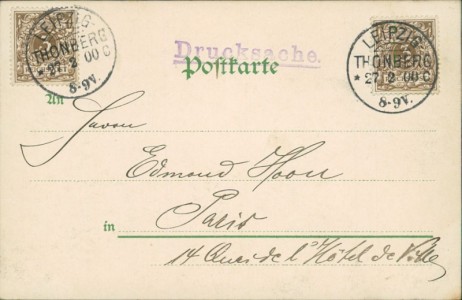 LEIPZIG-
THONBERG
* 27 2 00 C
8-9V.
LEIPZIG-
THONBERG
* 27 2 00 C
8-9V.
Drucksache.
Postkarte
An
Herrn
Edmond Hoorn
in Paris
14 Quai de l'Hôtel de Ville